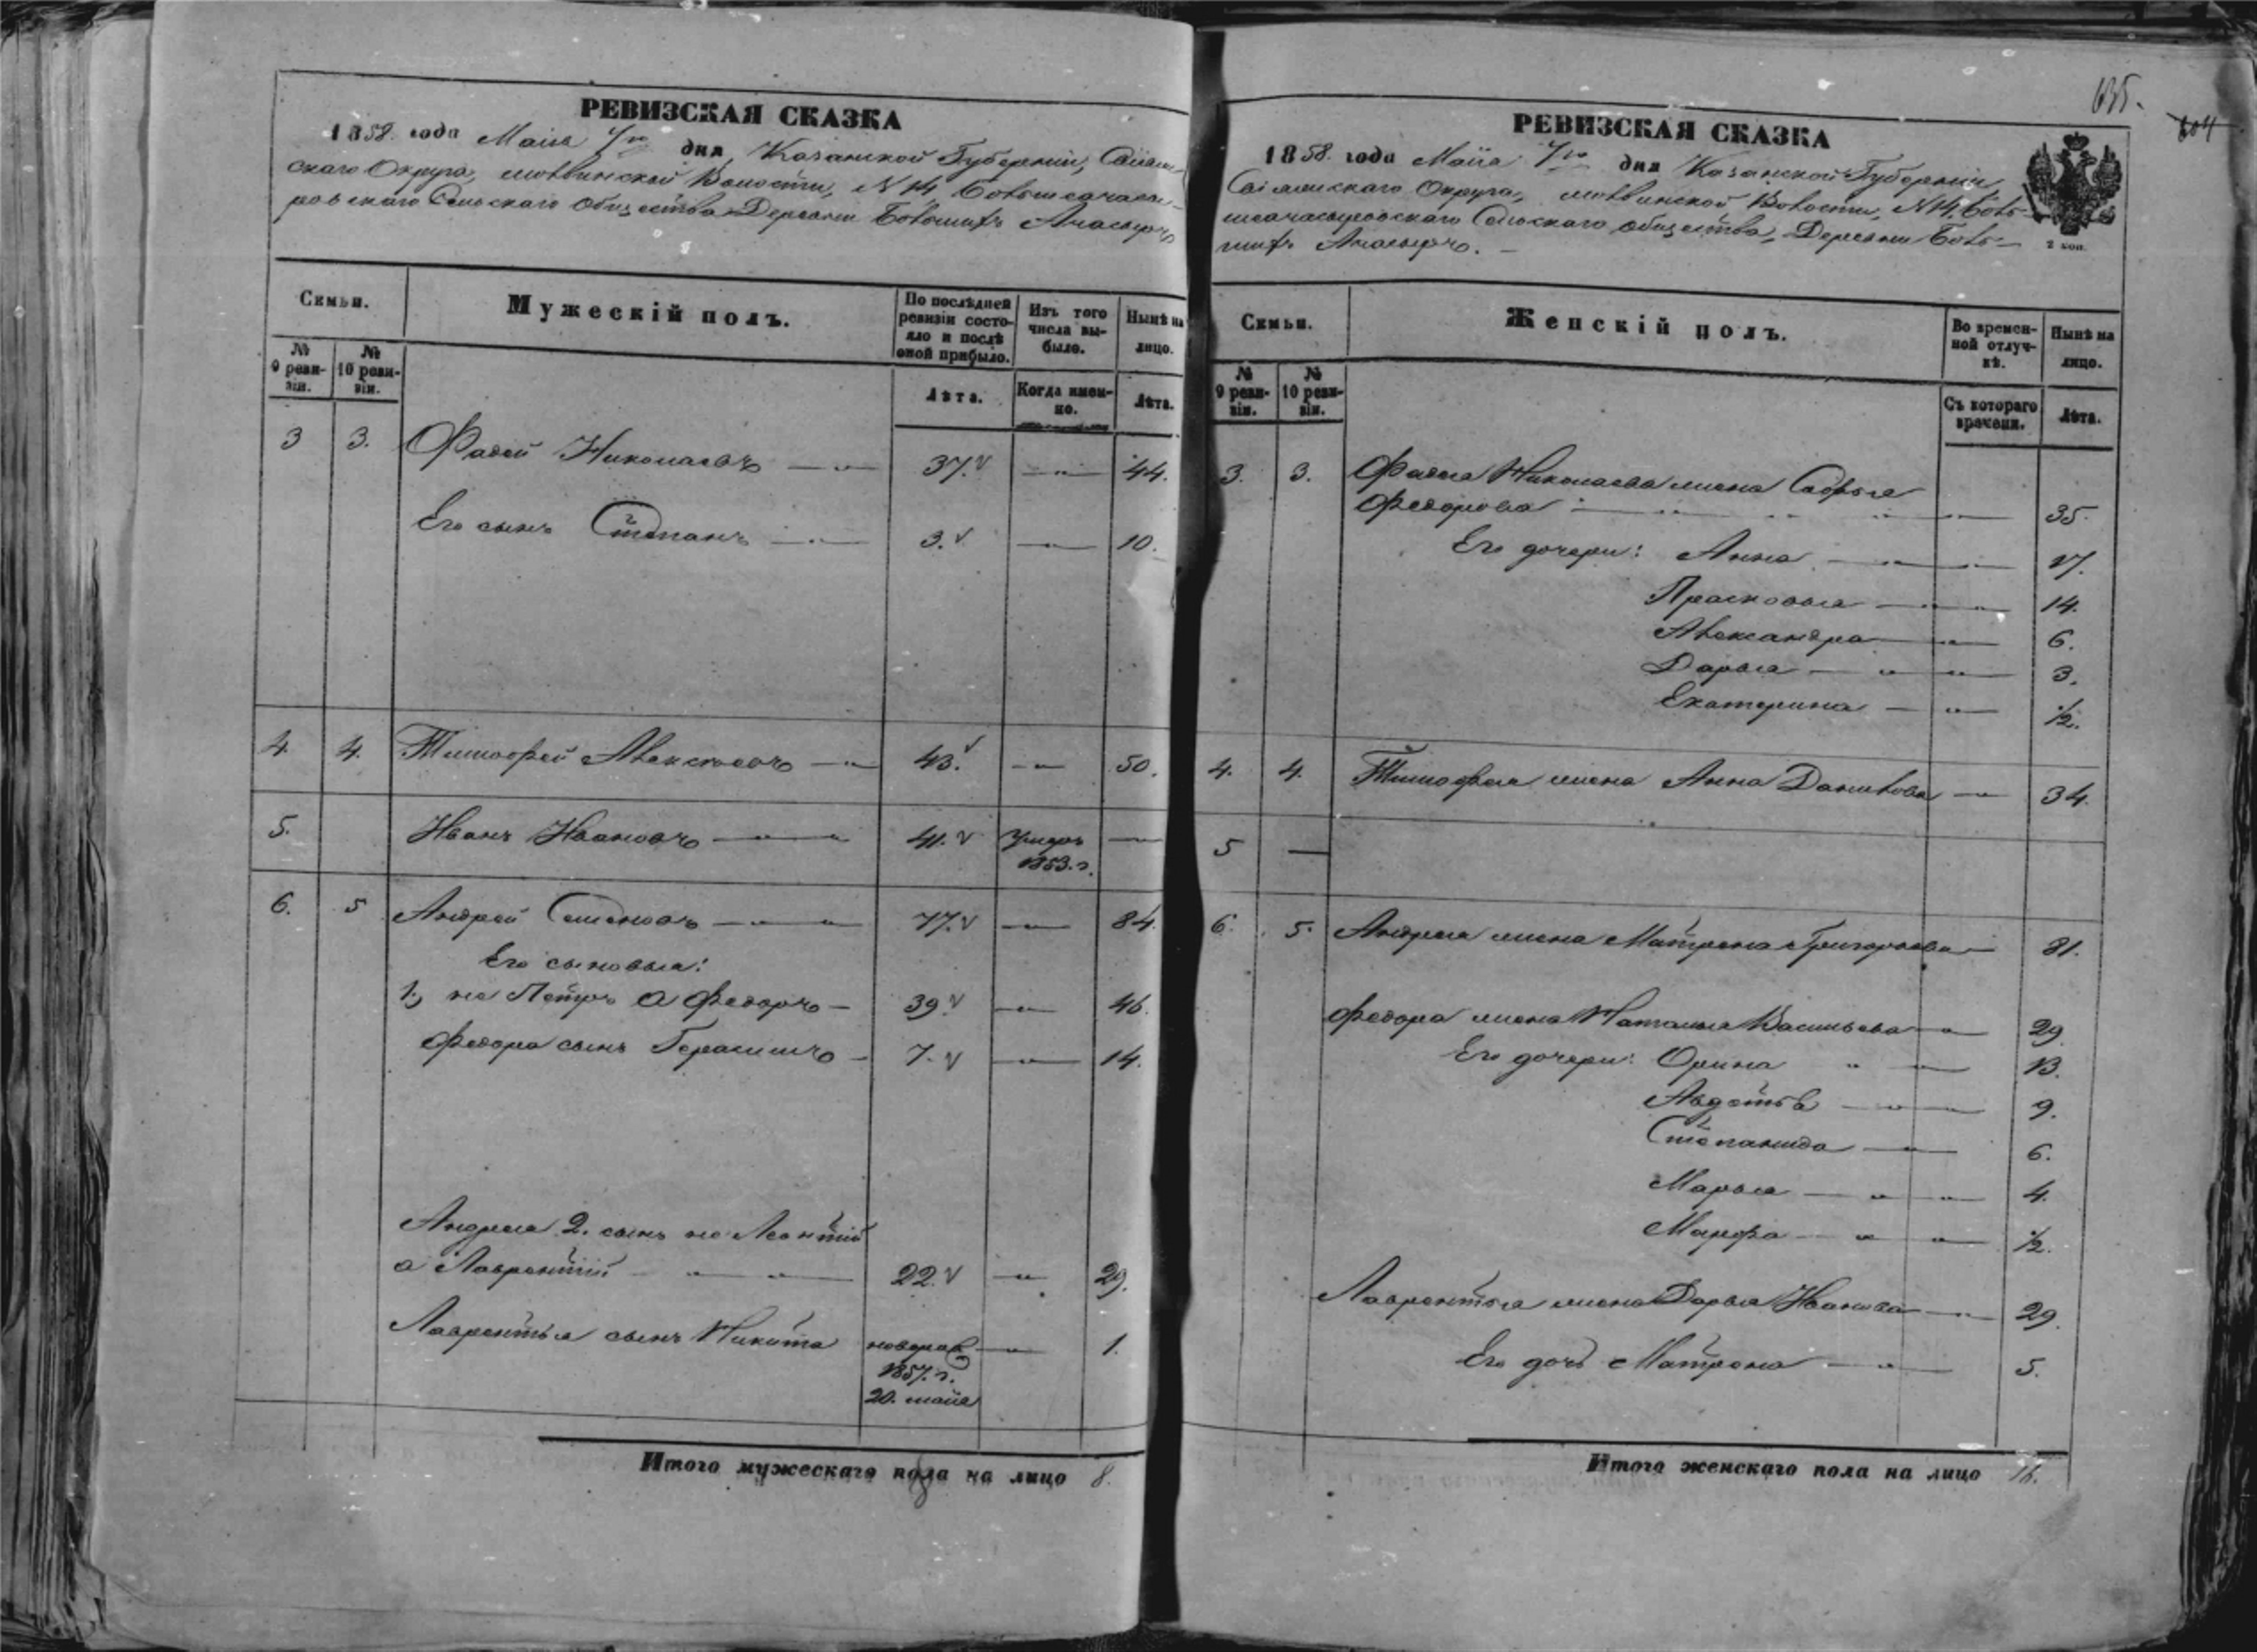 635.
604
РЕВИЗСКАЯ СКАЗКА
1858 года Маія 7го дня, Казанской Губерніи,
скаго Округа, Волости, № 14,
ровскаго Сельскаго общества Деревни
Семьи.
Мужескій полъ.
По послѣдней ревизіи состояло и послѣ оной прибыло.
Изъ того числа выбыло.
Нынѣ на лицо.
№ 9 ревизіи.
№ 10 ревизіи.
Лѣта.
Когда именно.
Лѣта.
3 3. Фадей Николаевъ 37. 44.
Его сынъ Степанъ 3. 10.
4. 4. Тимофей Алексѣевъ 43. 50.
5. Иванъ Ивановъ 41. умеръ 1853. г.
6. 5 Андрей Семеновъ 77. 84.
Его сыновья:
1, не Петръ а Федоръ 39. 46.
Федора сынъ Герасимъ 7. 14.
Андрея 2. сынъ не Леонтій
а Лаврентій 22. 29.
Лаврентья сынъ Никита новорож 1.
1857. г.
20. маія
Итого мужескаго пола на лицо 8.
РЕВИЗСКАЯ СКАЗКА
1858. года Маія 7го дня Казанской Губерніи,
Округа, Волости, № 14.
Сельскаго общества, Деревни
2 коп.
Семьи.
Женскій полъ.
Во временной отлучкѣ.
Нынѣ на лицо.
№ 9 ревизіи.
№ 10 ревизіи.
Съ котораго времени.
Лѣта.
3. 3. Фадея Николаева жена
Федорова 35.
Его дочери: Анна 17.
Прасковья 14.
Александра 6.
Дарья 3.
Екатерина 1/2.
4. 4. Тимофея жена Анна Данилова 34.
5
6. 5. Андрея жена Матрена Григорьева 81.
Федора жена Наталья Васильева 29
Его дочери: Орина 13.
Авдотья 9.
Степанида 6.
Марья 4.
Марфа 1/2.
Лаврентья жена Дарья Иванова 29.
Его дочь Матрена 5.
Итого женскаго пола на лицо 16.